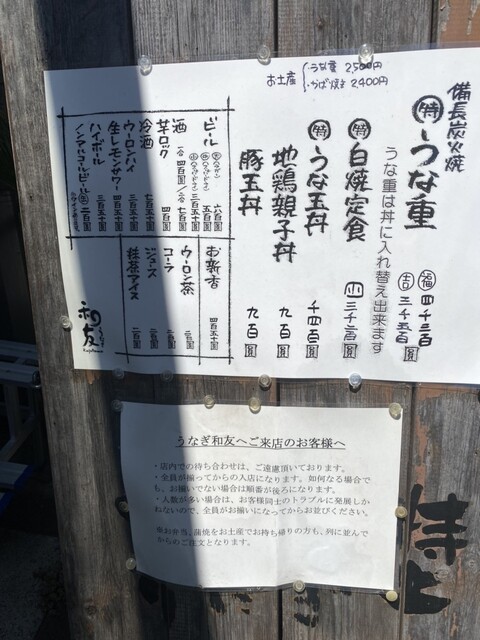 お土産 うな重 2,500円
かば焼き 2,400円
備長炭火焼
特 うな重
福 四千三百
吉 三千五百円
うな重は丼に入れ替え出来ます
特 白焼定食 三千三百円
特 うな玉丼 千四百円
地鶏親子丼 九百円
豚玉丼 九百円
ビール
六百円
五百円
三百五十円
酒 一合 四百円 七百円
芋ロック 四百円
冷酒 七百五十円
ウーロンハイ 三百五十円
生レモンサワー 四百五十円
ハイボール 三百五十円
ノンアルコールビール 三百円
お新香 四百五十円
ウーロン茶 二百円
コーラ 二百円
ジュース 二百円
抹茶アイス 二百円
和友
うなぎ和友へご来店のお客様へ
・店内での待ち合わせは、ご遠慮頂いております。
・全員が揃ってからの入店になります。如何なる場合で
も、お揃いでない場合は順番が後ろになります。
・人数が多い場合は、お客様同士のトラブルに発展しか
ねないので、全員がお揃いになってからお並びください。
※お弁当、蒲焼をお土産でお持ち帰りの方も、列に並んで
からのご注文となります。